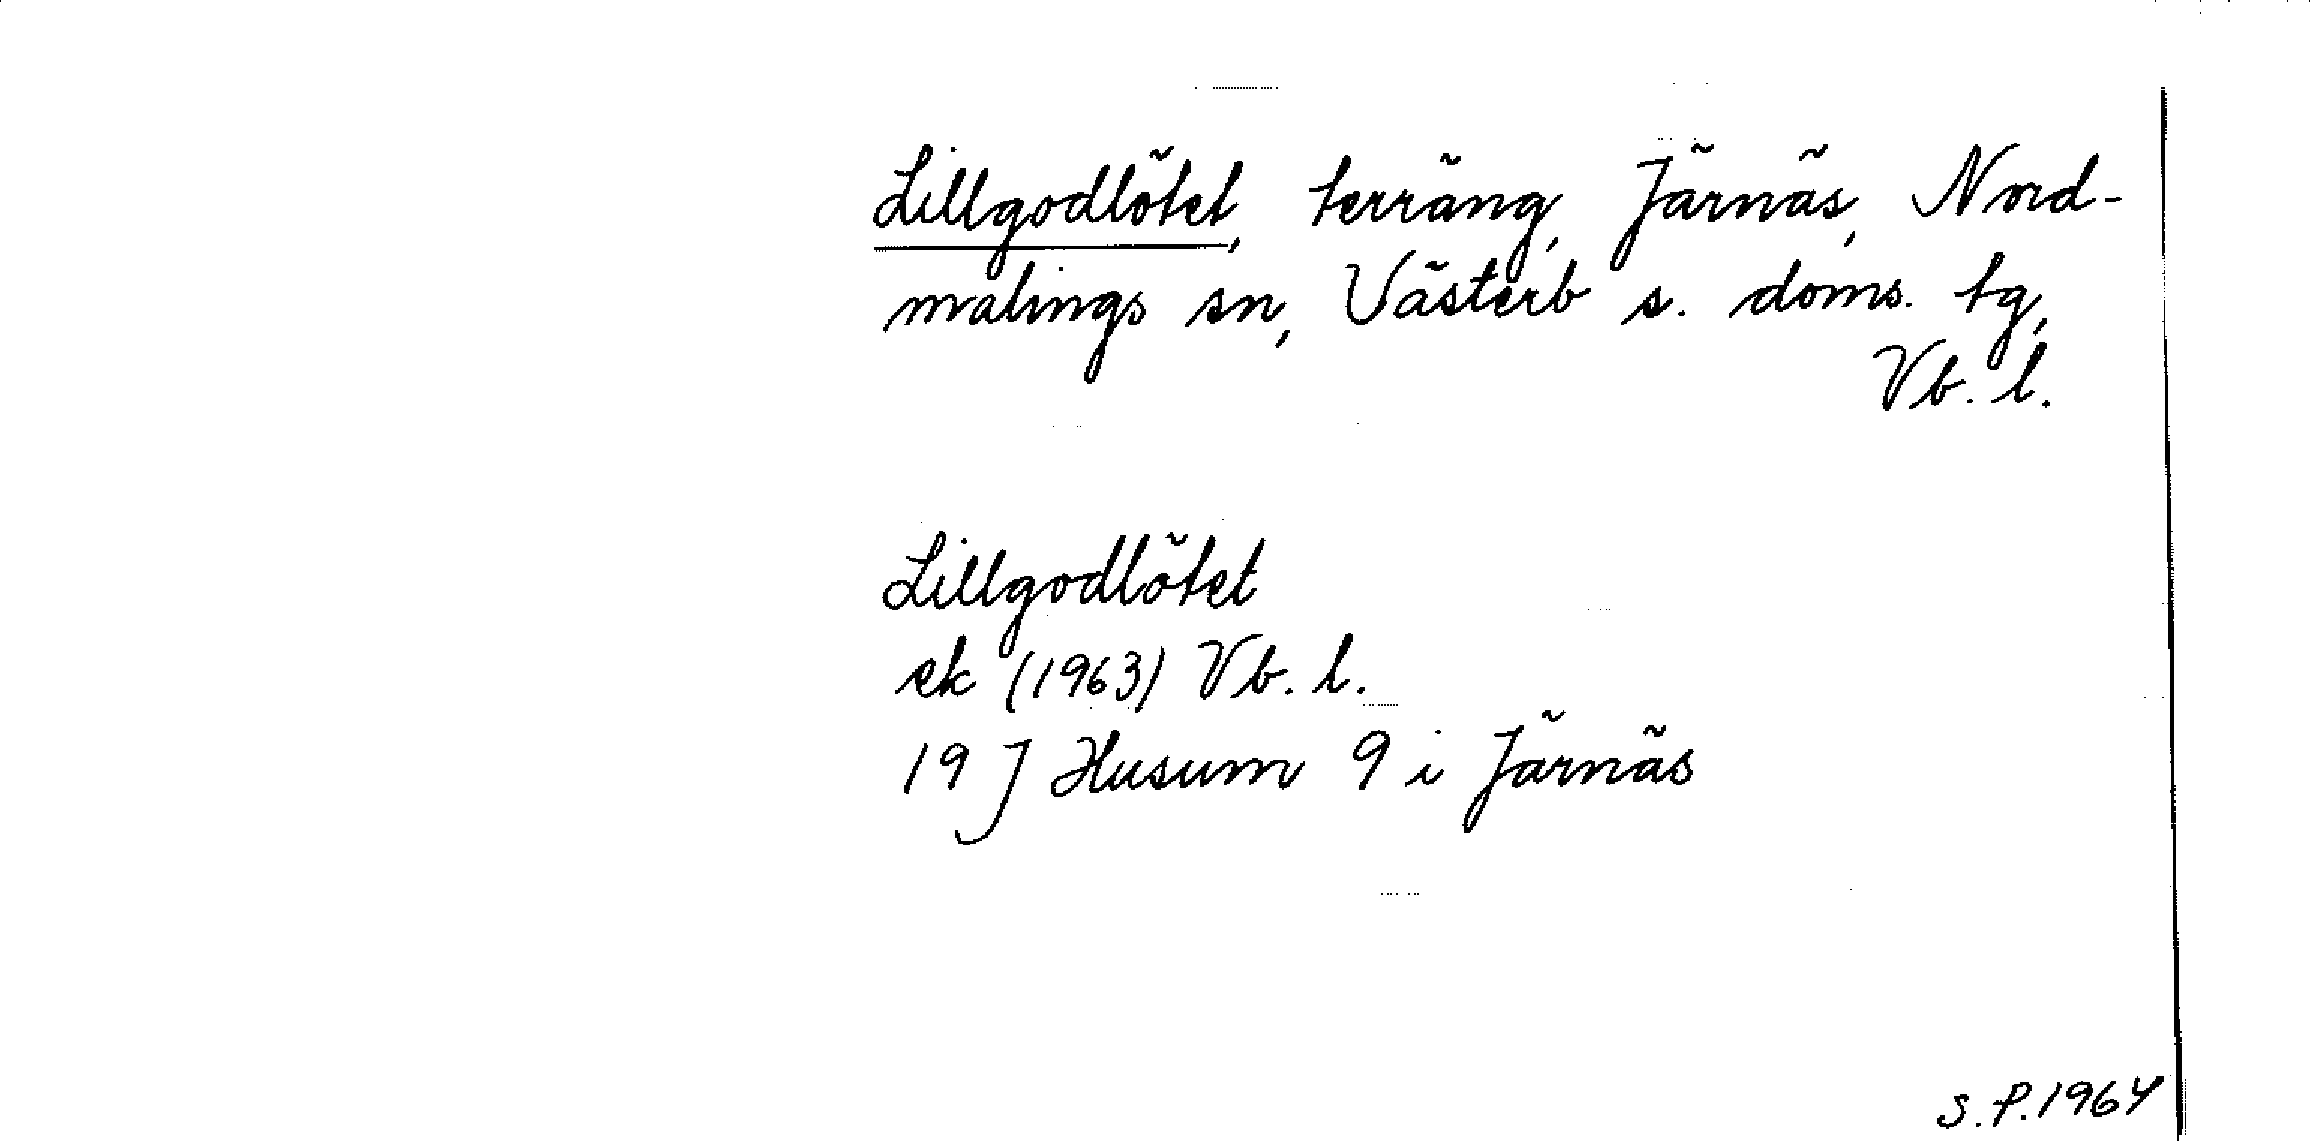 Lillgodlötet, terräng, Järnäs, Nord-
malings sn, Västerb s. doms. tg,
Vb. l.
Lillgodlötet
ek (1963) Vb. l.
19 J Husum 9 i Järnäs
S.P. 1964